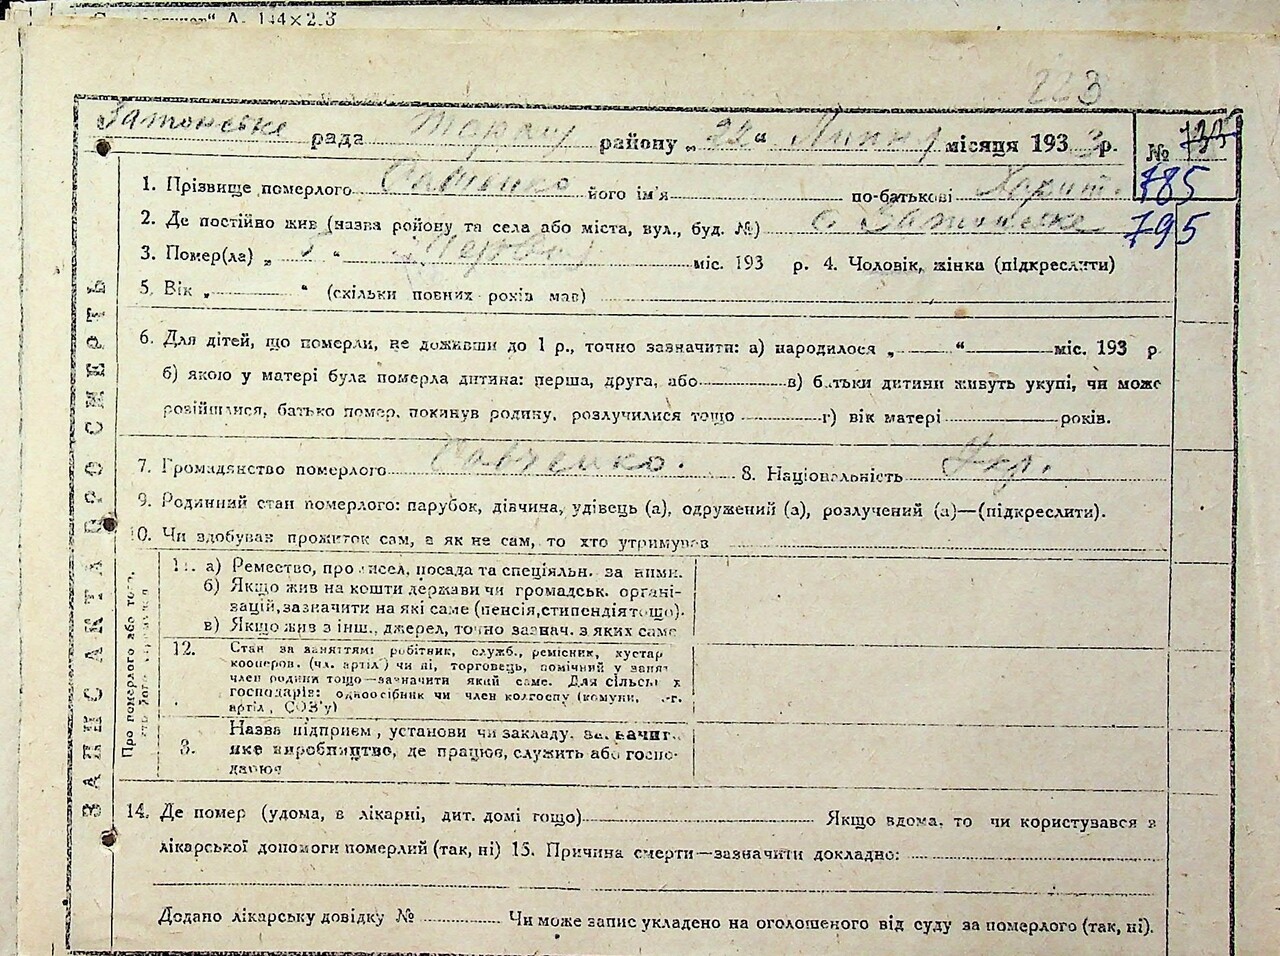 А. 144×2.3
223
Затонське рада району „22“ Липня місяця 1933 р. № 735
1. Прізвище померлого Савченко його ім'я по-батькові Харит. 785
2. Де постійно жив (назва району та села або міста, вул., буд. №) с. Затонське 795
3. Помер(ла) „ “ міс. 193 р. 4. Чоловік, жінка (підкреслити)
5. Вік „ “ (скільки повних років мав)
6. Для дітей, що померли, не доживши до 1 р., точно зазначити: а) народилося „ “ міс. 193 р
б) якою у матері була померла дитина: перша, друга, або в) батьки дитини живуть укупі, чи може
розійшлися, батько помер, покинув родину, розлучилися тощо г) вік матері років.
7. Громадянство померлого Савченко. 8. Національність Укр.
9. Родинний стан померлого: парубок, дівчина, удівець (а), одружений (а), розлучений (а)—(підкреслити).
10. Чи здобував прожиток сам, а як не сам, то хто утримував
ЗАПИС АКТА ПРО СМЕРТЬ
Про померлого або того,
11. а) Ремество, промисел, посада та спеціяльн. за ними.
б) Якщо жив на кошти держави чи громадськ. органі-
зацій, зазначити на які саме (пенсія, стипендія тощо).
в) Якщо жив з інш., джерел, точно зазнач. з яких саме
12. Стан за заняттям: робітник, служб., ремісник, кустар
кооперов. (чл. артіл) чи ні, торговець, помічний у занят
член родини тощо—зазначити який саме. Для сільськ х
господарів: одноосібник чи член колгоспу (комуни, с.-г.
артіл, СОЗ'у)
Назва підприєм, установи чи закладу, зазначит.
3. яке виробництво, де працює, служить або госпо-
дарює
14. Де помер (удома, в лікарні, дит. домі тощо) Якщо вдома, то чи користувався з
лікарської допомоги померлий (так, ні) 15. Причина смерти—зазначити докладно:
Додано лікарську довідку № Чи може запис укладено на оголошеного від суду за померлого (так, ні).